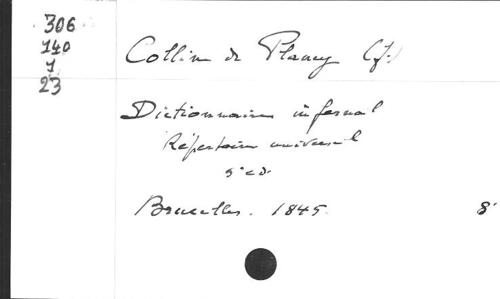 306
140
1
23
Collin de Plancy (J.)
Dictionnaire infernal
Répertoire universel
5e ed.
Bruxelles. 1845.
8°